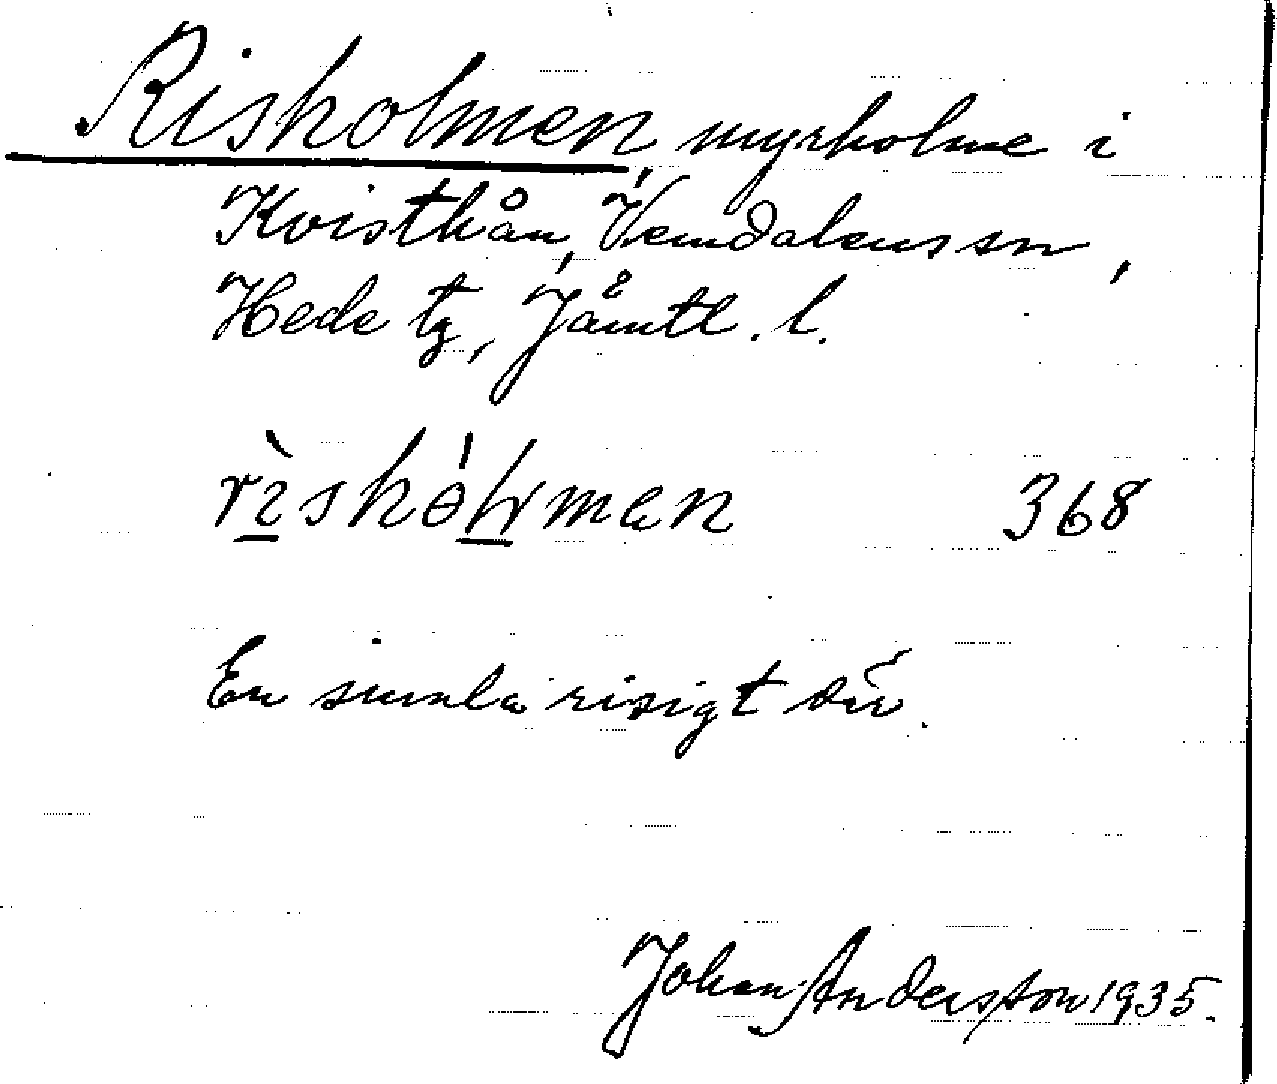 Risholmen, myrholme i
Kvisthån, Vemdalens sn,
Hede tg, Jämtl. l.
rìskɵ́lmen 368
En sumla risigt där.
Johan Andersson 1935.